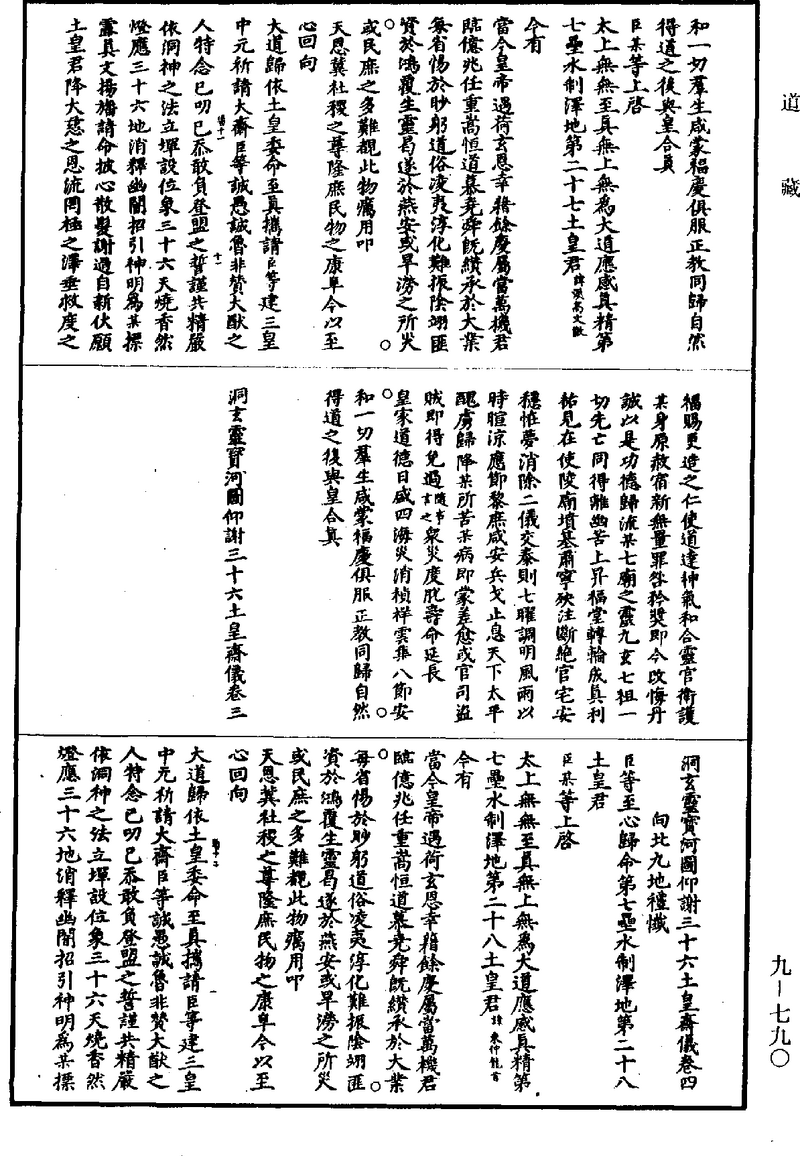 道藏
和一切羣生咸蒙福慶俱服正教同歸自然
得道之後與皇合真
臣某等上啓
太上無無至真無上無為大道應感真精第
七壘水制澤地第二十七土皇君諱張高文散
今有
當今皇帝遇荷玄恩幸藉餘慶屬當萬機君
臨億兆任重嵩恒道慕堯舜旣纘承於大業
每省惕於眇躬道俗凌夷淳化難振陰翊匪
資於鴻覆生靈曷遂於燕安或旱澇之所災
或民庶之多難覩此物癘用叩
天恩冀社稷之尊隆庶民物之康阜今以至
心回向
大道歸依土皇委命至真攜請臣等建三皇
中元祈請大齋臣等誠愚誠魯非贊大猷之
人特念已叨已忝敢負登盟之誓謹共精嚴
依洞神之法立墠設位象三十六天燒香然
燈應三十六地消釋幽關招引神明為某摽
露真文揚旛請命披心散髮謝過自新伏願
土皇君降大慈之恩流罔極之澤垂救度之
福賜更造之仁使道達神氣和合靈官衛護
某身原赦宿新無量罪咎矜獎即今改悔丹
誠以是功德歸流某七廟之靈九玄七祖一
切先亡同得離幽苦上昇福堂轉輪成真利
祐見在使陵廟墳墓肅寧殃注斷絕官宅安
穩恠夢消除二儀交泰則七曜調明風雨以
時暄涼應節黎庶咸安兵戈止息天下太平
醜虜歸降某所苦某病即蒙差愈或官司盜
賊即得免過隨事言之衆災度脫壽命延長
皇家道德日盛四海災消禎祥雲集八節安
和一切羣生咸蒙福慶俱服正教同歸自然
得道之後與皇合真
洞玄靈寳河圖仰謝三十六土皇齋儀卷三
洞玄靈寳河圖仰謝三十六土皇齋儀卷四
向北九地禮懺
臣等至心歸命第七壘水制澤地第二十八
土皇君
臣某等上啓
太上無無至真無上無為大道應感真精第
七壘水制澤地第二十八土皇君諱
今有
當今皇帝遇荷玄恩幸藉餘慶屬當萬機君
臨億兆任重嵩恒道慕堯舜旣纘承於大業
每省惕於眇躬道俗凌夷淳化難振陰翊匪
資於鴻覆生靈曷遂於燕安或旱澇之所災
或民庶之多難覩此物癘用叩
天恩冀社稷之尊隆庶民物之康阜今以至
心回向
大道歸依土皇委命至真攜請臣等建三皇
中元祈請大齋臣等誠愚誠魯非贊大猷之
人特念已叨已忝敢負登盟之誓謹共精嚴
依洞神之法立墠設位象三十六天燒香然
燈應三十六地消釋幽關招引神明為某摽
九—七九〇